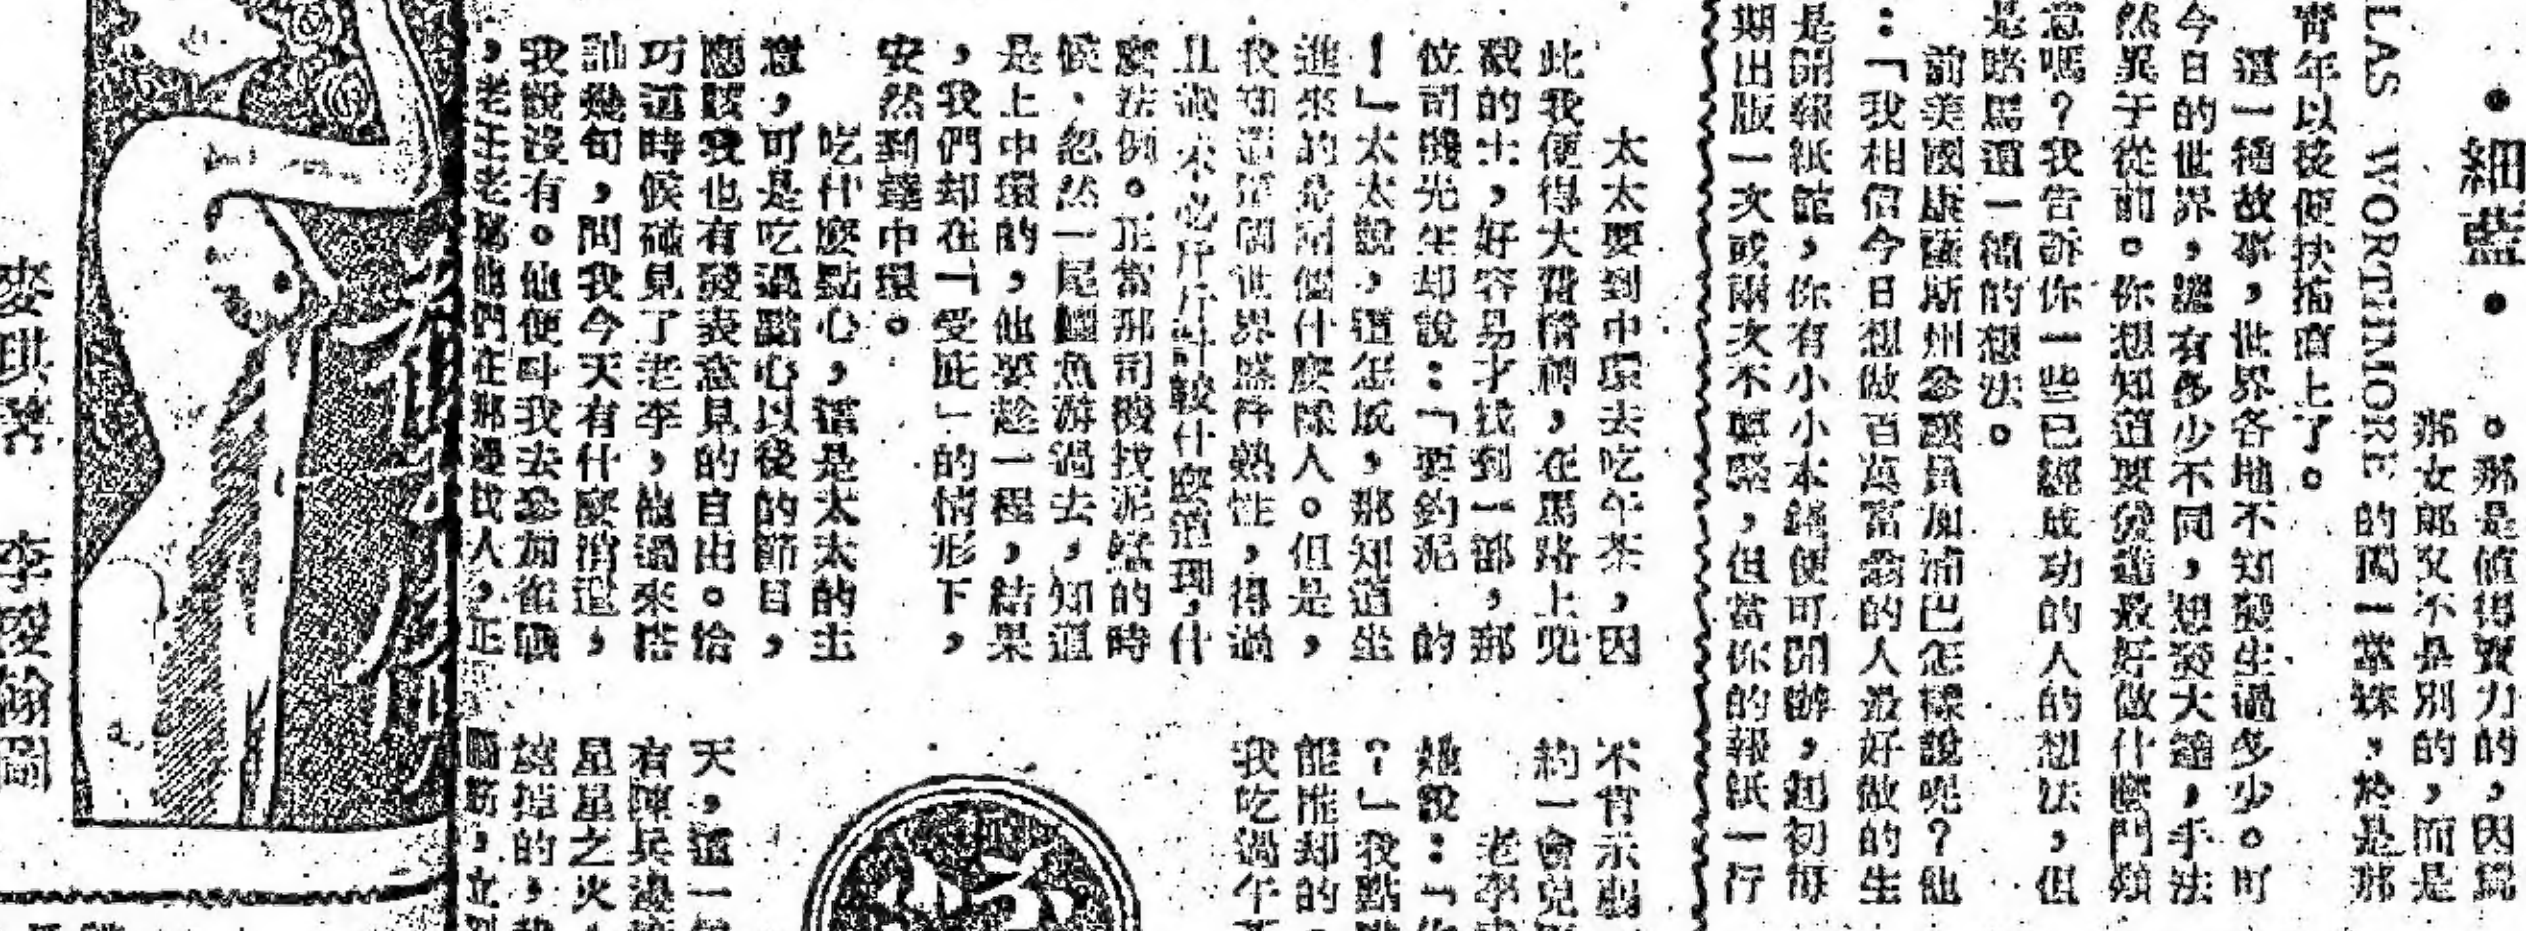 細藍
。那是值得賣力的，因爲
那女郎又不是別的，而是
LAS WORTIMORE 的獨一掌珠，於是那
青年以後便扶搖直上了。
這一種故事，世界各地不知發生過多少。可
今日的世界，總有多少不同，想發大達，手法
然異于從前。你想知道要發達最好做什麼門類
意嗎？我告訴你一些已經成功的人的想法，但
是賭馬這一個的想法。
前美國康薩斯州參議員加浦巴怎樣說呢？他
：「我相信今日想做百萬富翁的人最好做的生
是開報紙館，你有小小本錢便可開辦，起初每
期出版一次或兩次不要緊，但當你的報紙一行
太太要到中環去吃午茶，因
此我便得大費精神，在馬路上兜
截的士，好容易才找到一部，那
位司機先生却說：「要釣泥 的
！」太太說，這怎成，那知道坐
進來的是兩個什麼除人。但是，
我知道這個世界盛行熱性，得過
且過，未必斤斤計較什麼道理，什
麼法例。正當那司機找泥鯭的時
候，忽然一尾鱷魚游過去，知道
是上中環的，他要趁一程，結果
，我們却在「受庇」的情形下，
安然到達中環。
吃什麼點心，這是太太的主
意，可是吃過點心以後的節目，
應該我也有發表意見的自由。恰
巧這時候碰見了老李，他過來搭
訕幾句，問我今天有什麼消遣，
我說沒有。他便叫我去參加雀戰
，老王老馮他們在那邊找人，正
不肯示弱
約一會兒
老李
她說：「
？」我點
能推却的
我吃過午
天，這一
有陣兵
星星之火
燒掉的，
腦筋，立
麥琪著 李凌翰圖